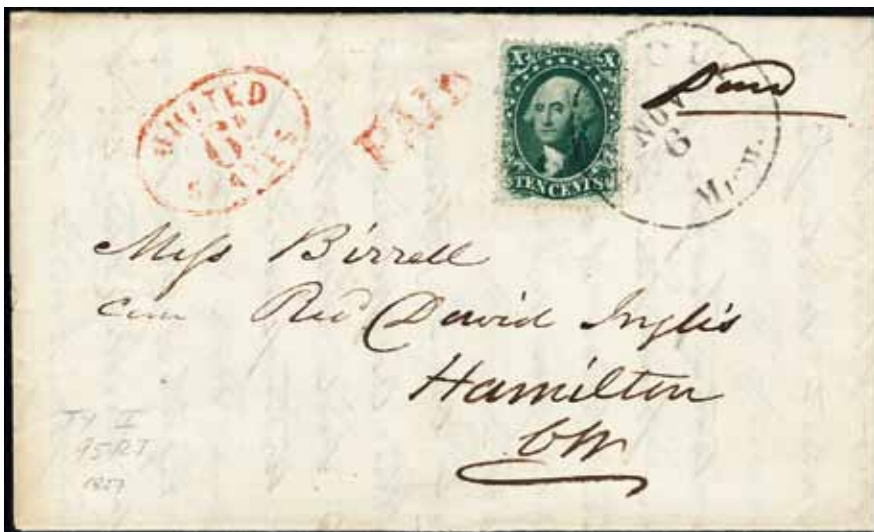 UNITED
6d
STATES
PAID
X X
TEN CENTS
NOV
6
MICH.
Paid
Miss Birrell
Rev David Inglis
Hamilton
CW
TY II
95R1
1857